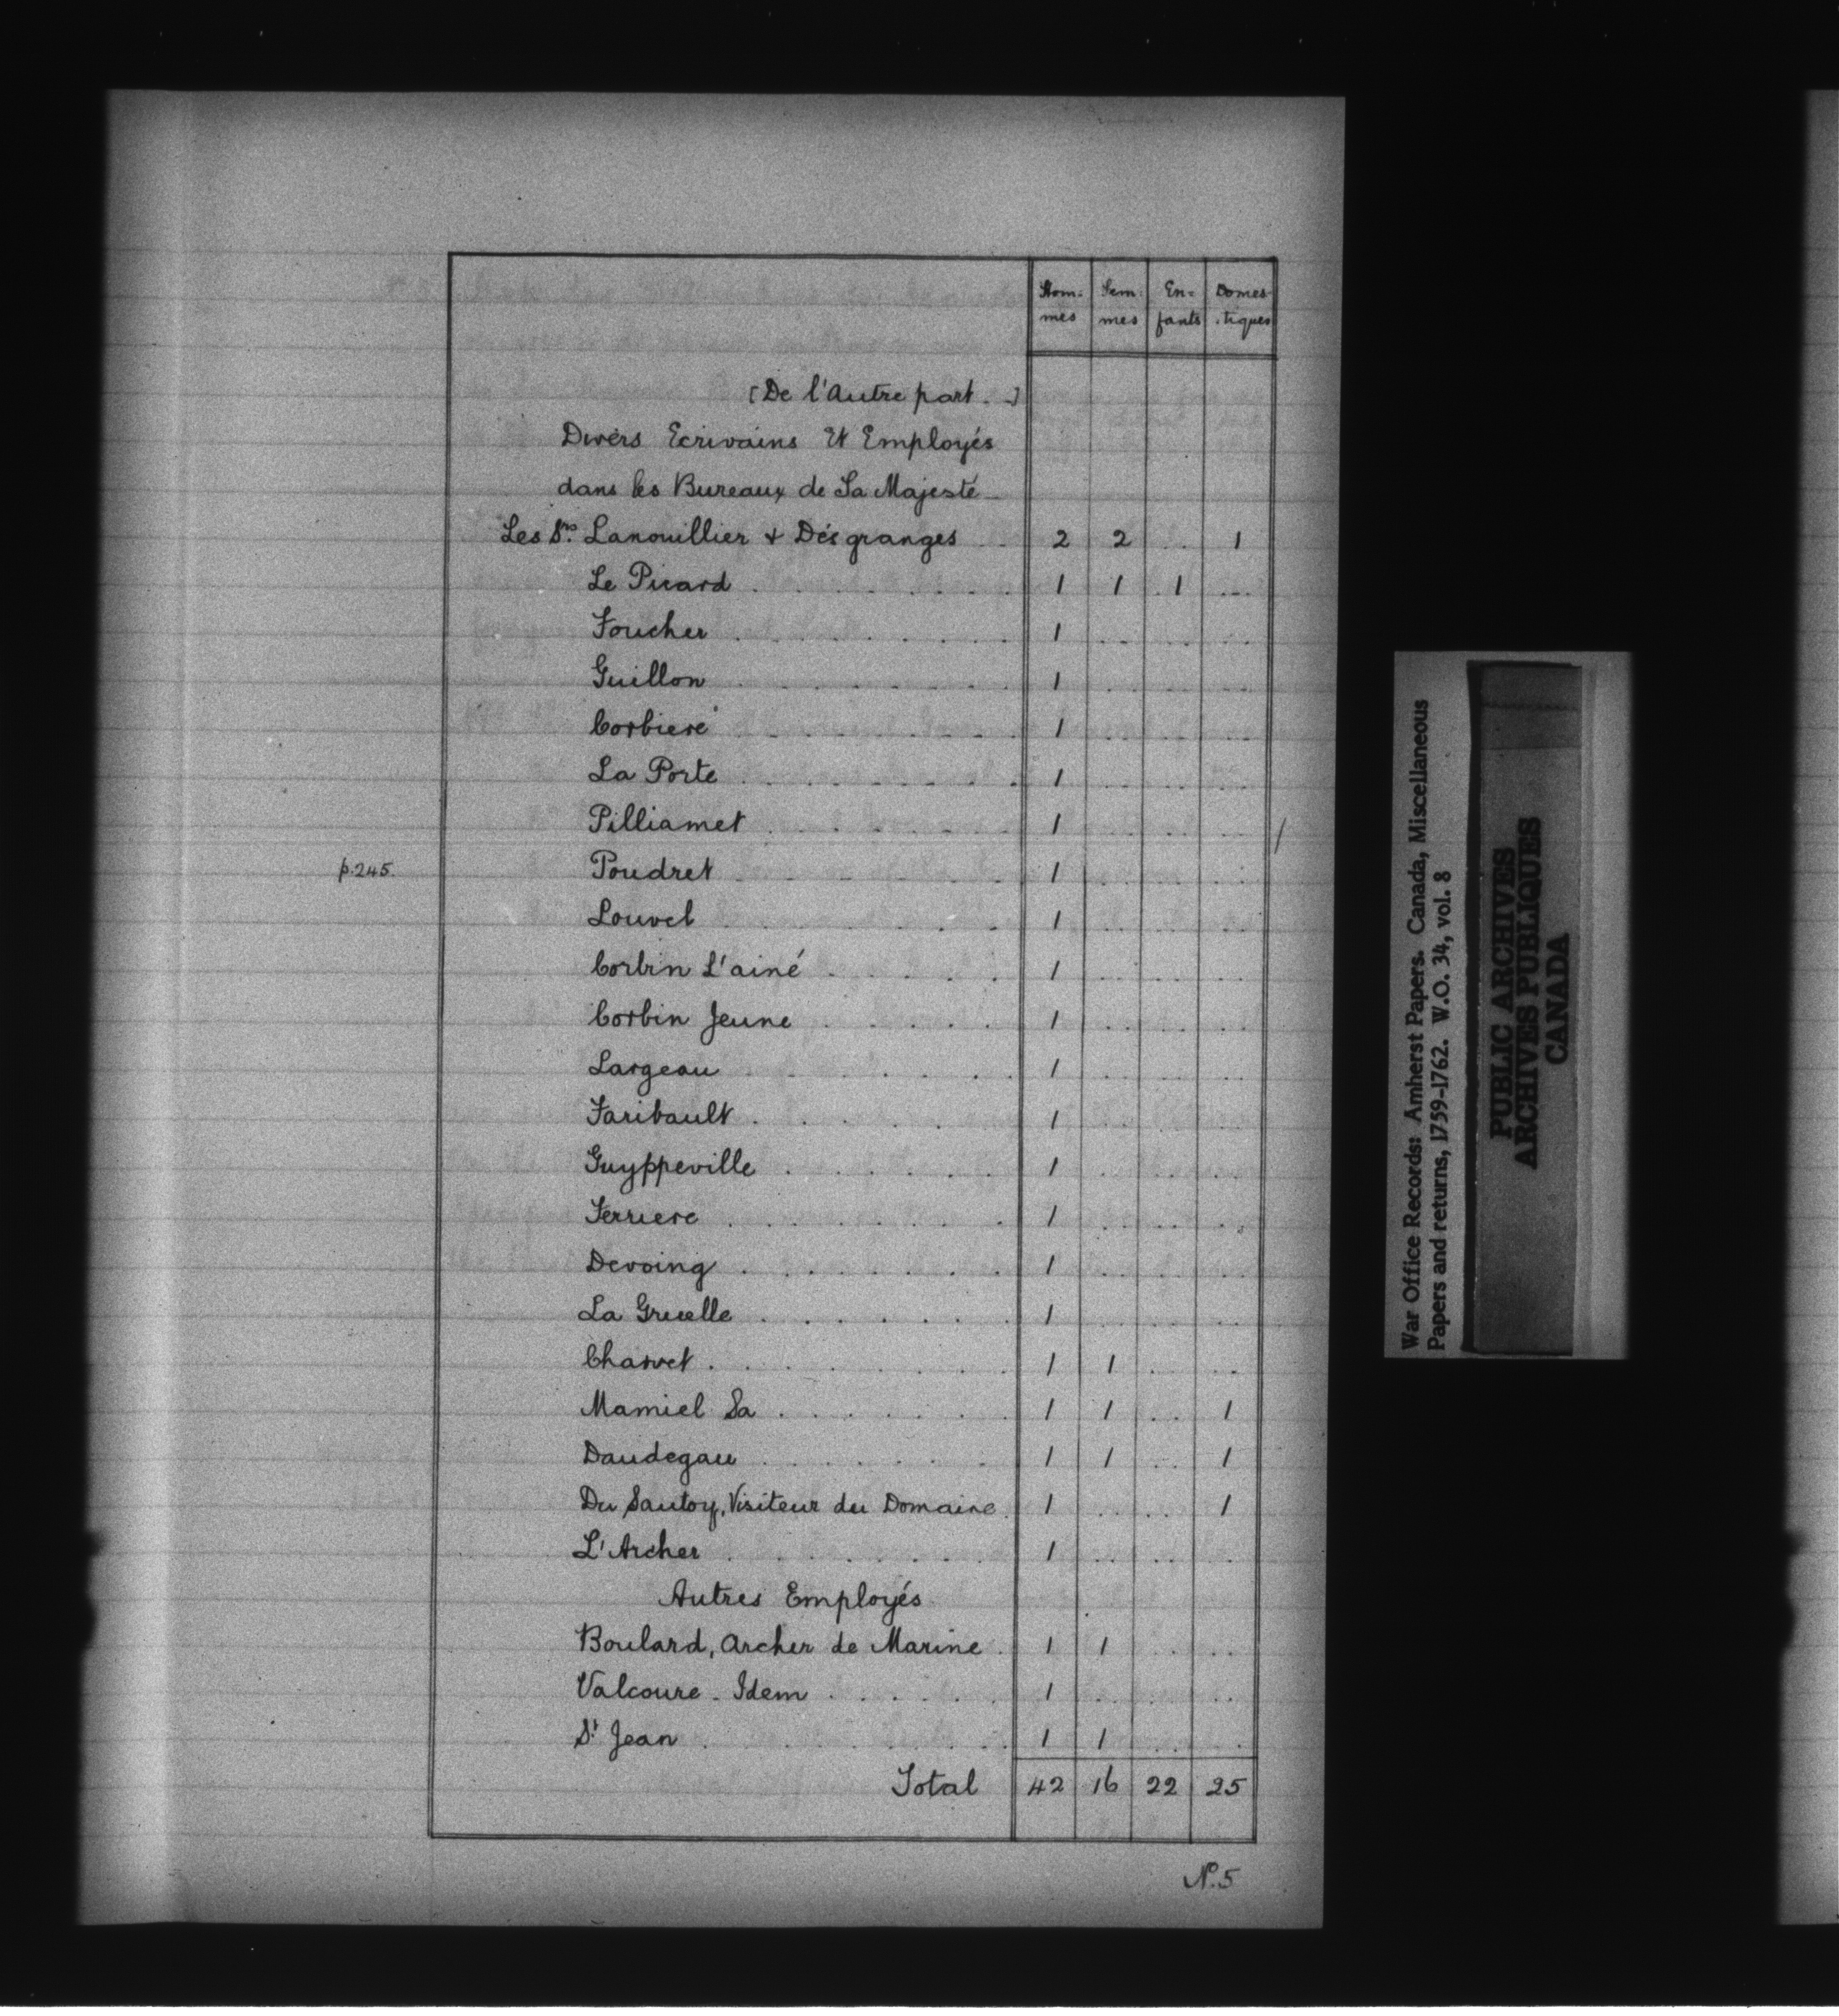 Hom- Fem- En- Domes-
mes mes fants tiques
[De l'Autre part -]
Divers Ecrivains Et Employés
dans les Bureaux de Sa Majesté
Les Srs. Lanouillier & Désgranges 2 2 .. 1
Le Picard 1 1 1 ...
Foucher 1
Guillon 1
Corbiere 1
La Porte 1
Pilliamet 1
p.245. Poudret 1
Louvel 1
Corbin L'ainé 1
Corbin Jeune 1
Largeau 1
Faribault 1
Guyppeville 1
Ferriere 1
Devoing 1
La Gruelle 1
Charvet 1 1
Mamiel Sa 1 1 .. 1
Daudegau 1 1 .. 1
Du Sautoy, Visiteur du Domaine 1 .. .. 1
L'Archer 1
Autres Employés
Boulard, Archer de Marine 1 1
Valcoure - Idem 1
St Jean 1 1
Total 42 16 22 25
No. 5
War Office Records: Amherst Papers. Canada, Miscellaneous
Papers and returns, 1759-1762. W.O. 34, vol. 8
PUBLIC ARCHIVES
ARCHIVES PUBLIQUES
CANADA